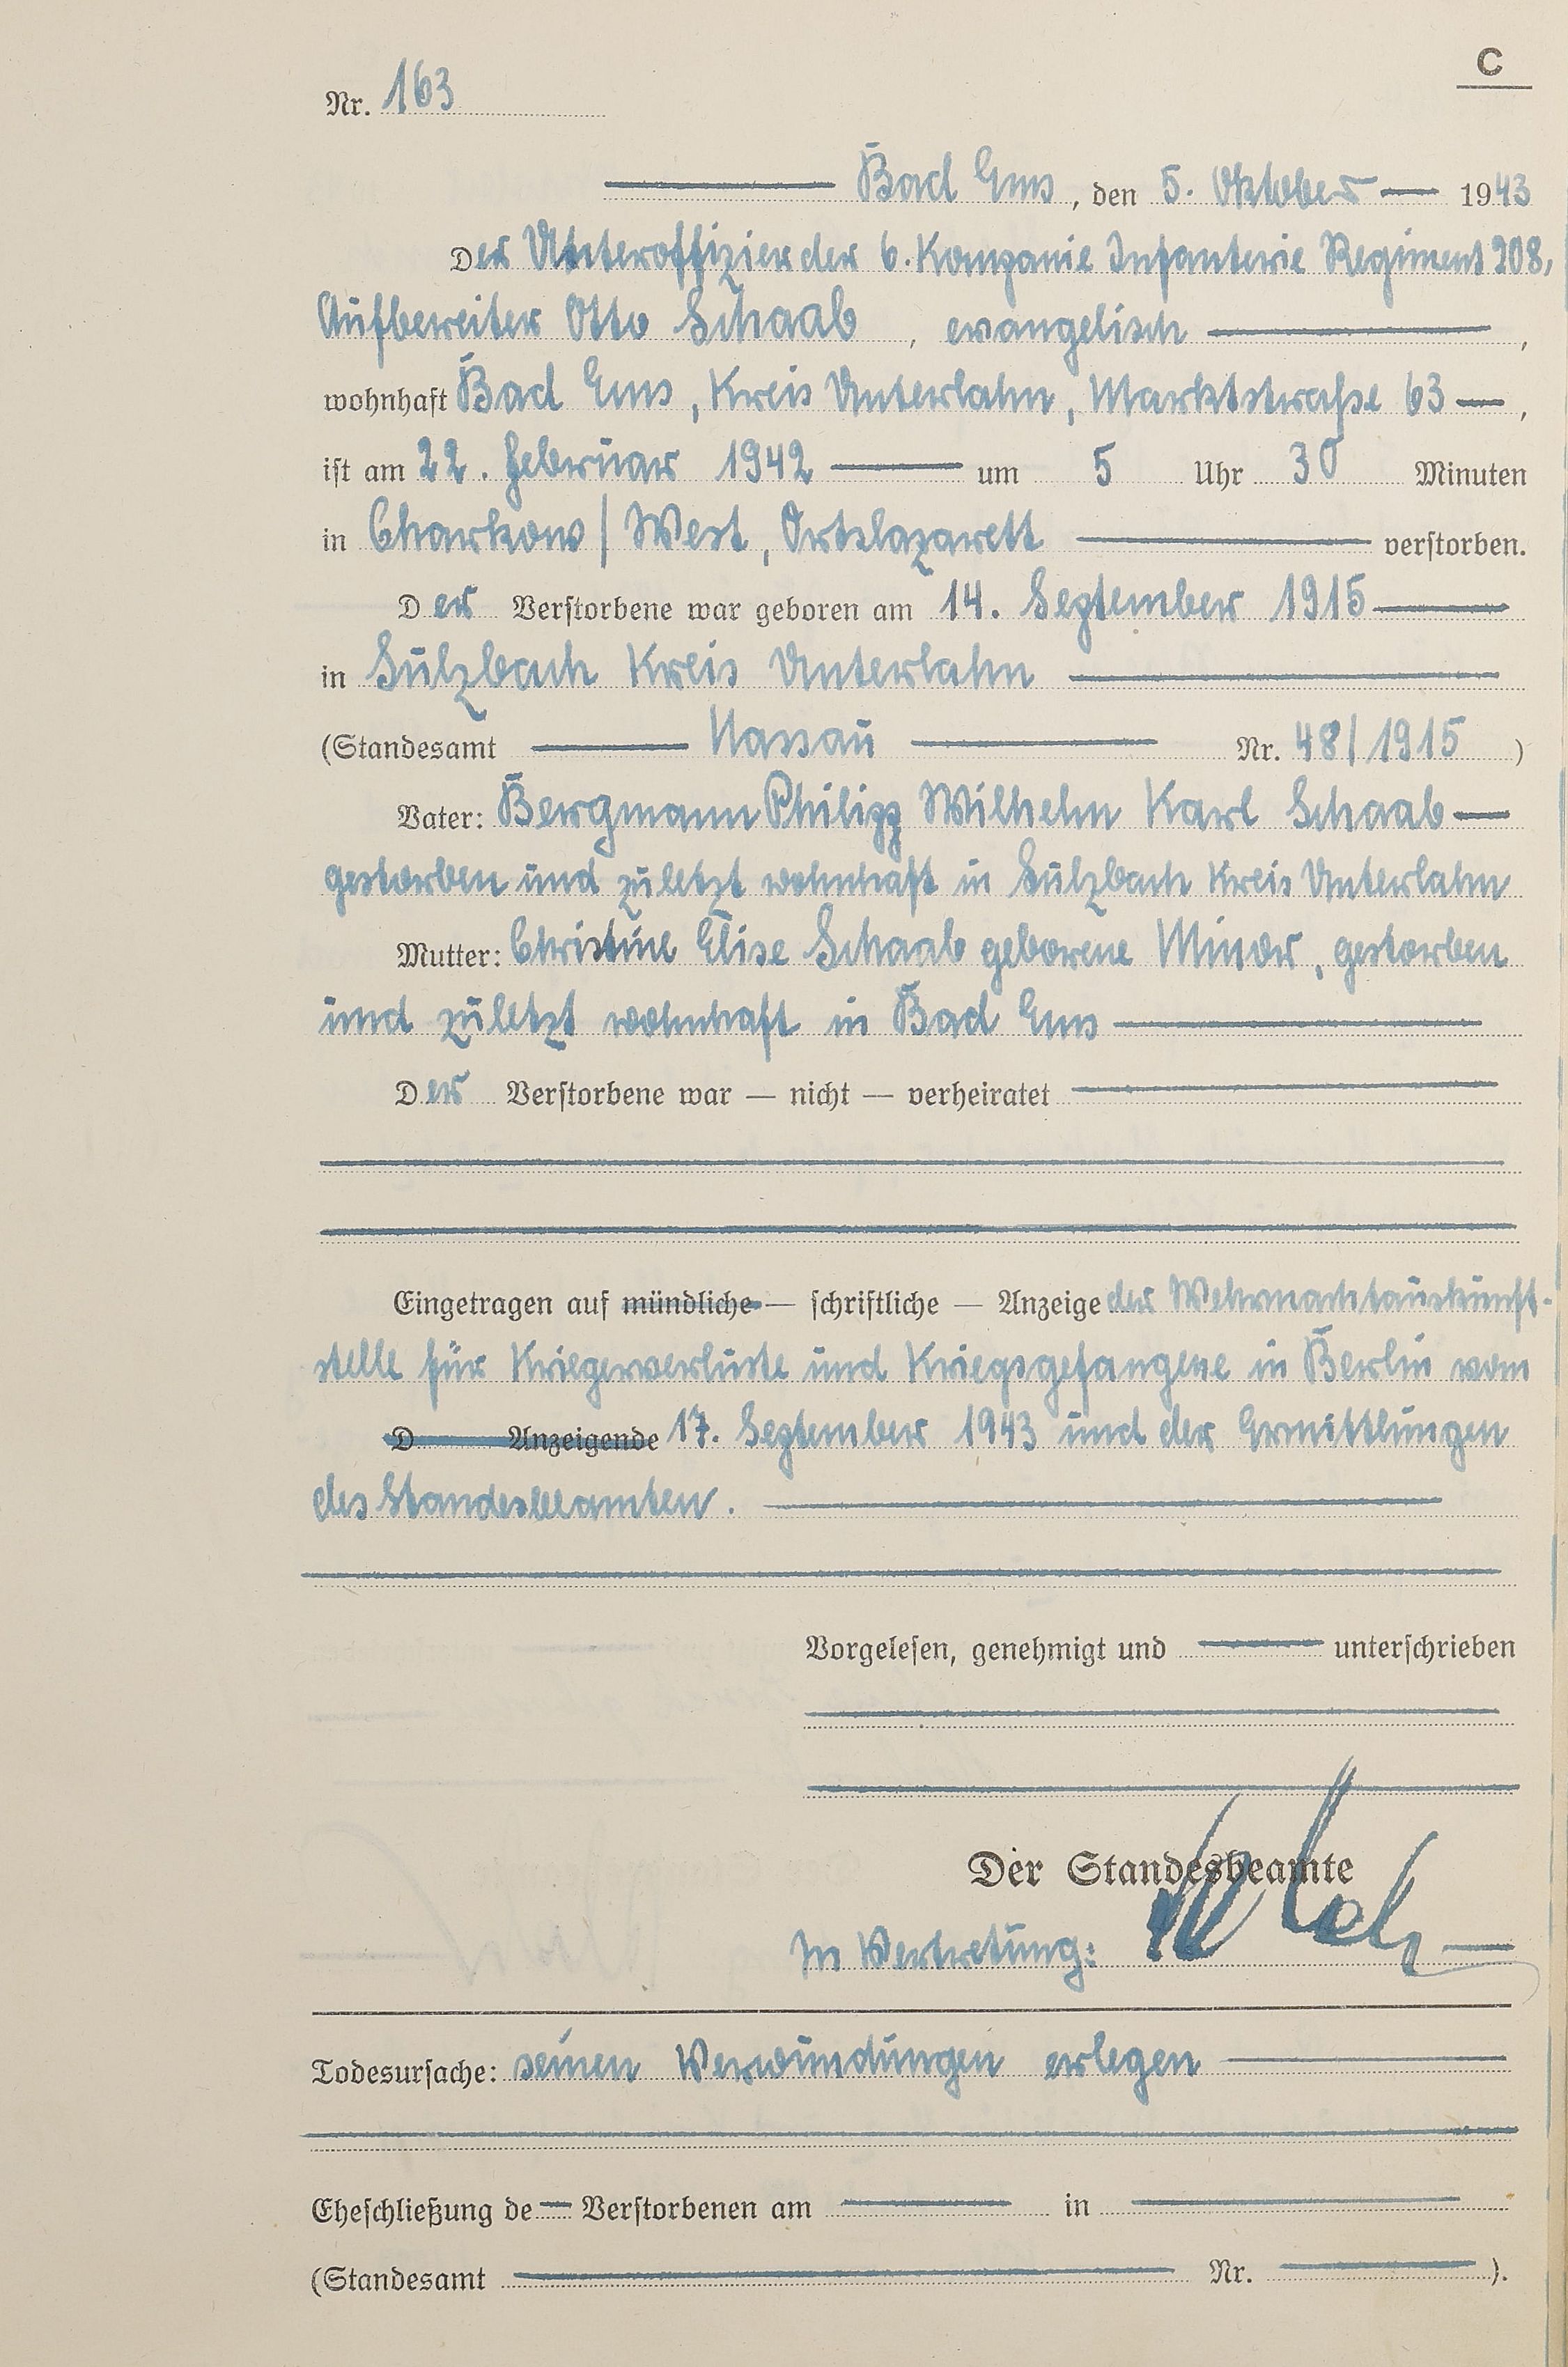 C
Nr. 163
Bad Ems, den 5. Oktober 1943
Der Unteroffizier der 6. Kompanie Infanterie Regiment 208,
Aufbereiter Otto Schaab, evangelisch,
wohnhaft Bad Ems, Kreis Unterlahn, Marktstraße 63,
ist am 22. Februar 1942 um 5 Uhr 30 Minuten
in Charkow/West, Ortslazarett verstorben.
Der Verstorbene war geboren am 14. September 1915
in Sulzbach Kreis Unterlahn
(Standesamt Nassau Nr. 48/1915)
Vater: Bergmann Philipp Wilhelm Karl Schaab
gestorben und zuletzt wohnhaft in Sulzbach Kreis Unterlahn
Mutter: Christine Elise Schaab geborene Minor, gestorben
und zuletzt wohnhaft in Bad Ems
Der Verstorbene war — nicht — verheiratet
Eingetragen auf mündliche — schriftliche — Anzeige der Wehrmachtauskunft-
stelle für Kriegerverluste und Kriegsgefangene in Berlin vom
D Anzeigende 17. September 1943 und der Ermittlungen
des Standesbeamten.
Vorgelesen, genehmigt und unterschrieben
Der Standesbeamte
In Vertretung:
Todesursache: seinen Verwundungen erlegen
Eheschließung de Verstorbenen am in
(Standesamt Nr. ).